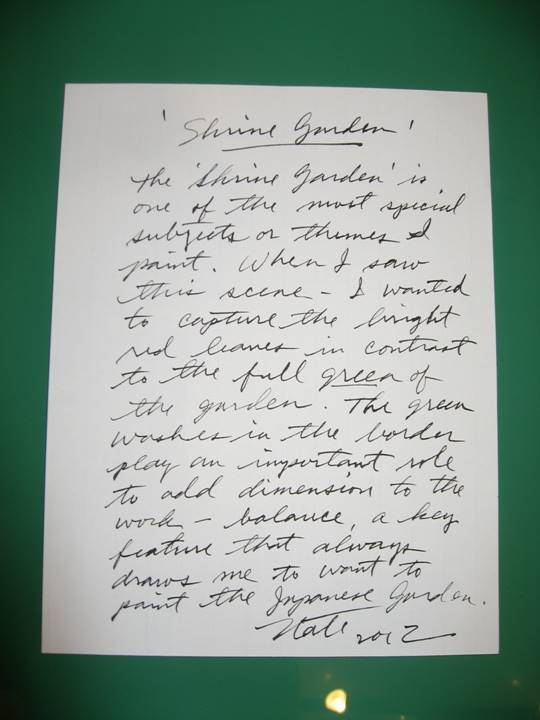 'Shrine Garden'
The 'Shrine Garden' is
one of the most special
subjects or themes I
paint. When I saw
this scene - I wanted
to capture the bright
red leaves in contrast
to the full green of
the garden. The green
washes in the border
play an important role
to add dimension to the
work - balance, a key
feature that always
draws me to want to
paint the Japanese Garden.
2012